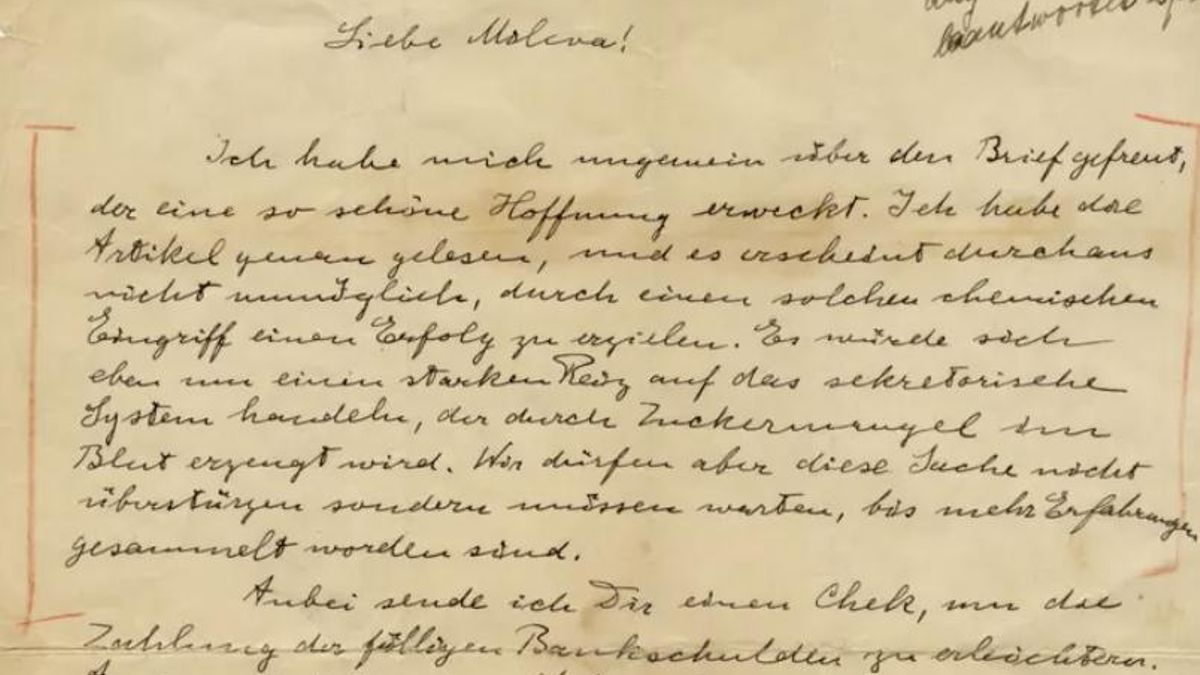 beantwortet
Liebe Mileva!
Ich habe mich ungemein über den Brief gefreut,
der eine so schöne Hoffnung erweckt. Ich habe die
Artikel genau gelesen, und es erscheint durchaus
nicht unmöglich, durch einen solchen chemischen
Eingriff einen Erfolg zu erzielen. Es würde sich
eben um einen starken Reiz auf das sekretorische
System handeln, der durch Zuckermangel im
Blut erzeugt wird. Wir dürfen aber diese Sache nicht
überstürzen sondern müssen warten, bis mehr Erfahrungen
gesammelt worden sind.
Anbei sende ich Dir einen Chek, um die
Zahlung der fälligen Bankschulden zu erleichtern.